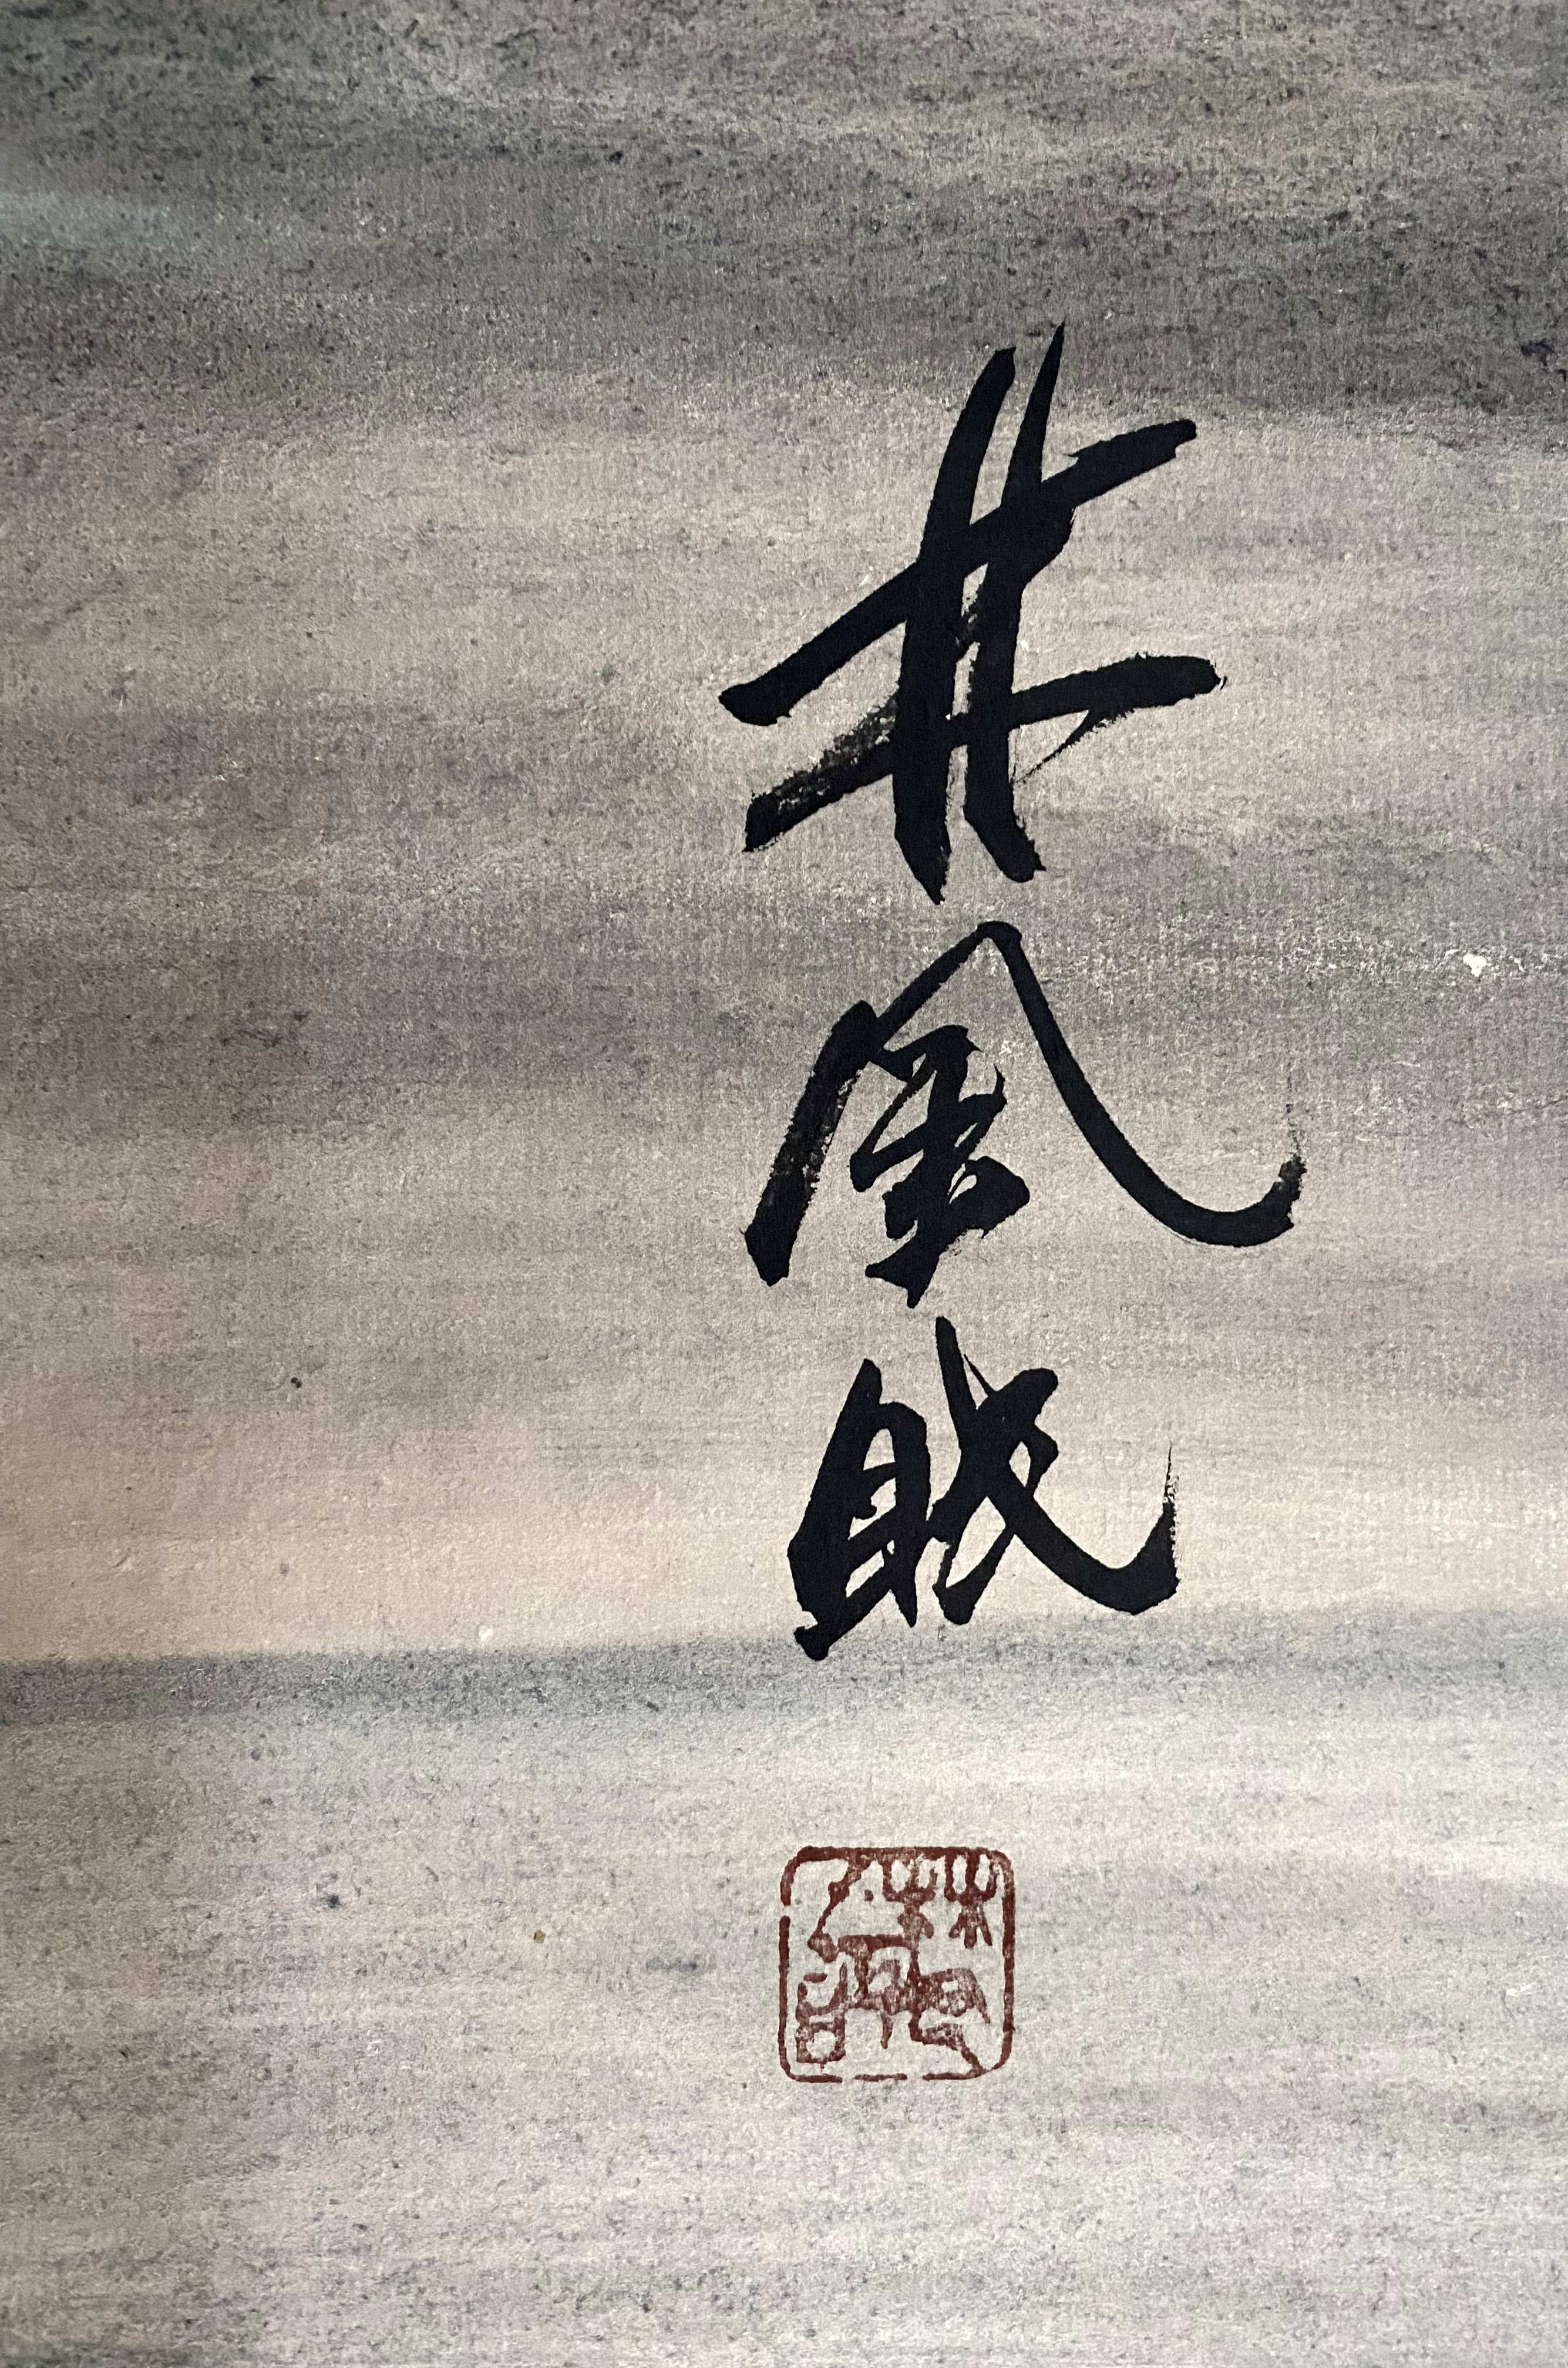 林風眠
林風眠印